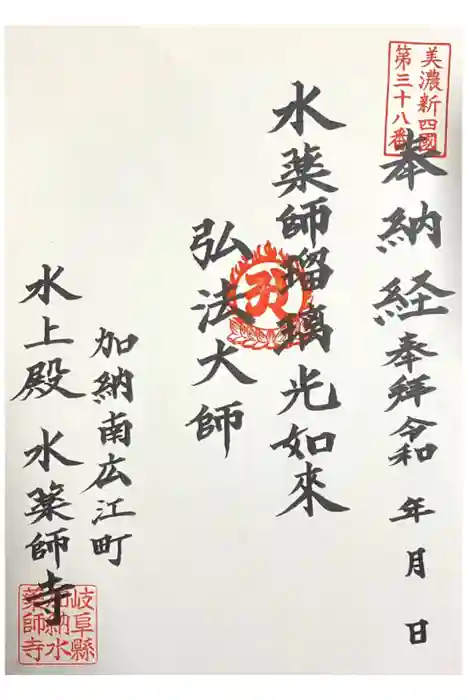 美濃新四國
第三十八番
奉納経 奉拜 令和 年 月 日
水薬師瑠璃光如來
弘法大師
加納南広江町
水上殿 水薬師寺
岐阜縣
加納水
薬師寺